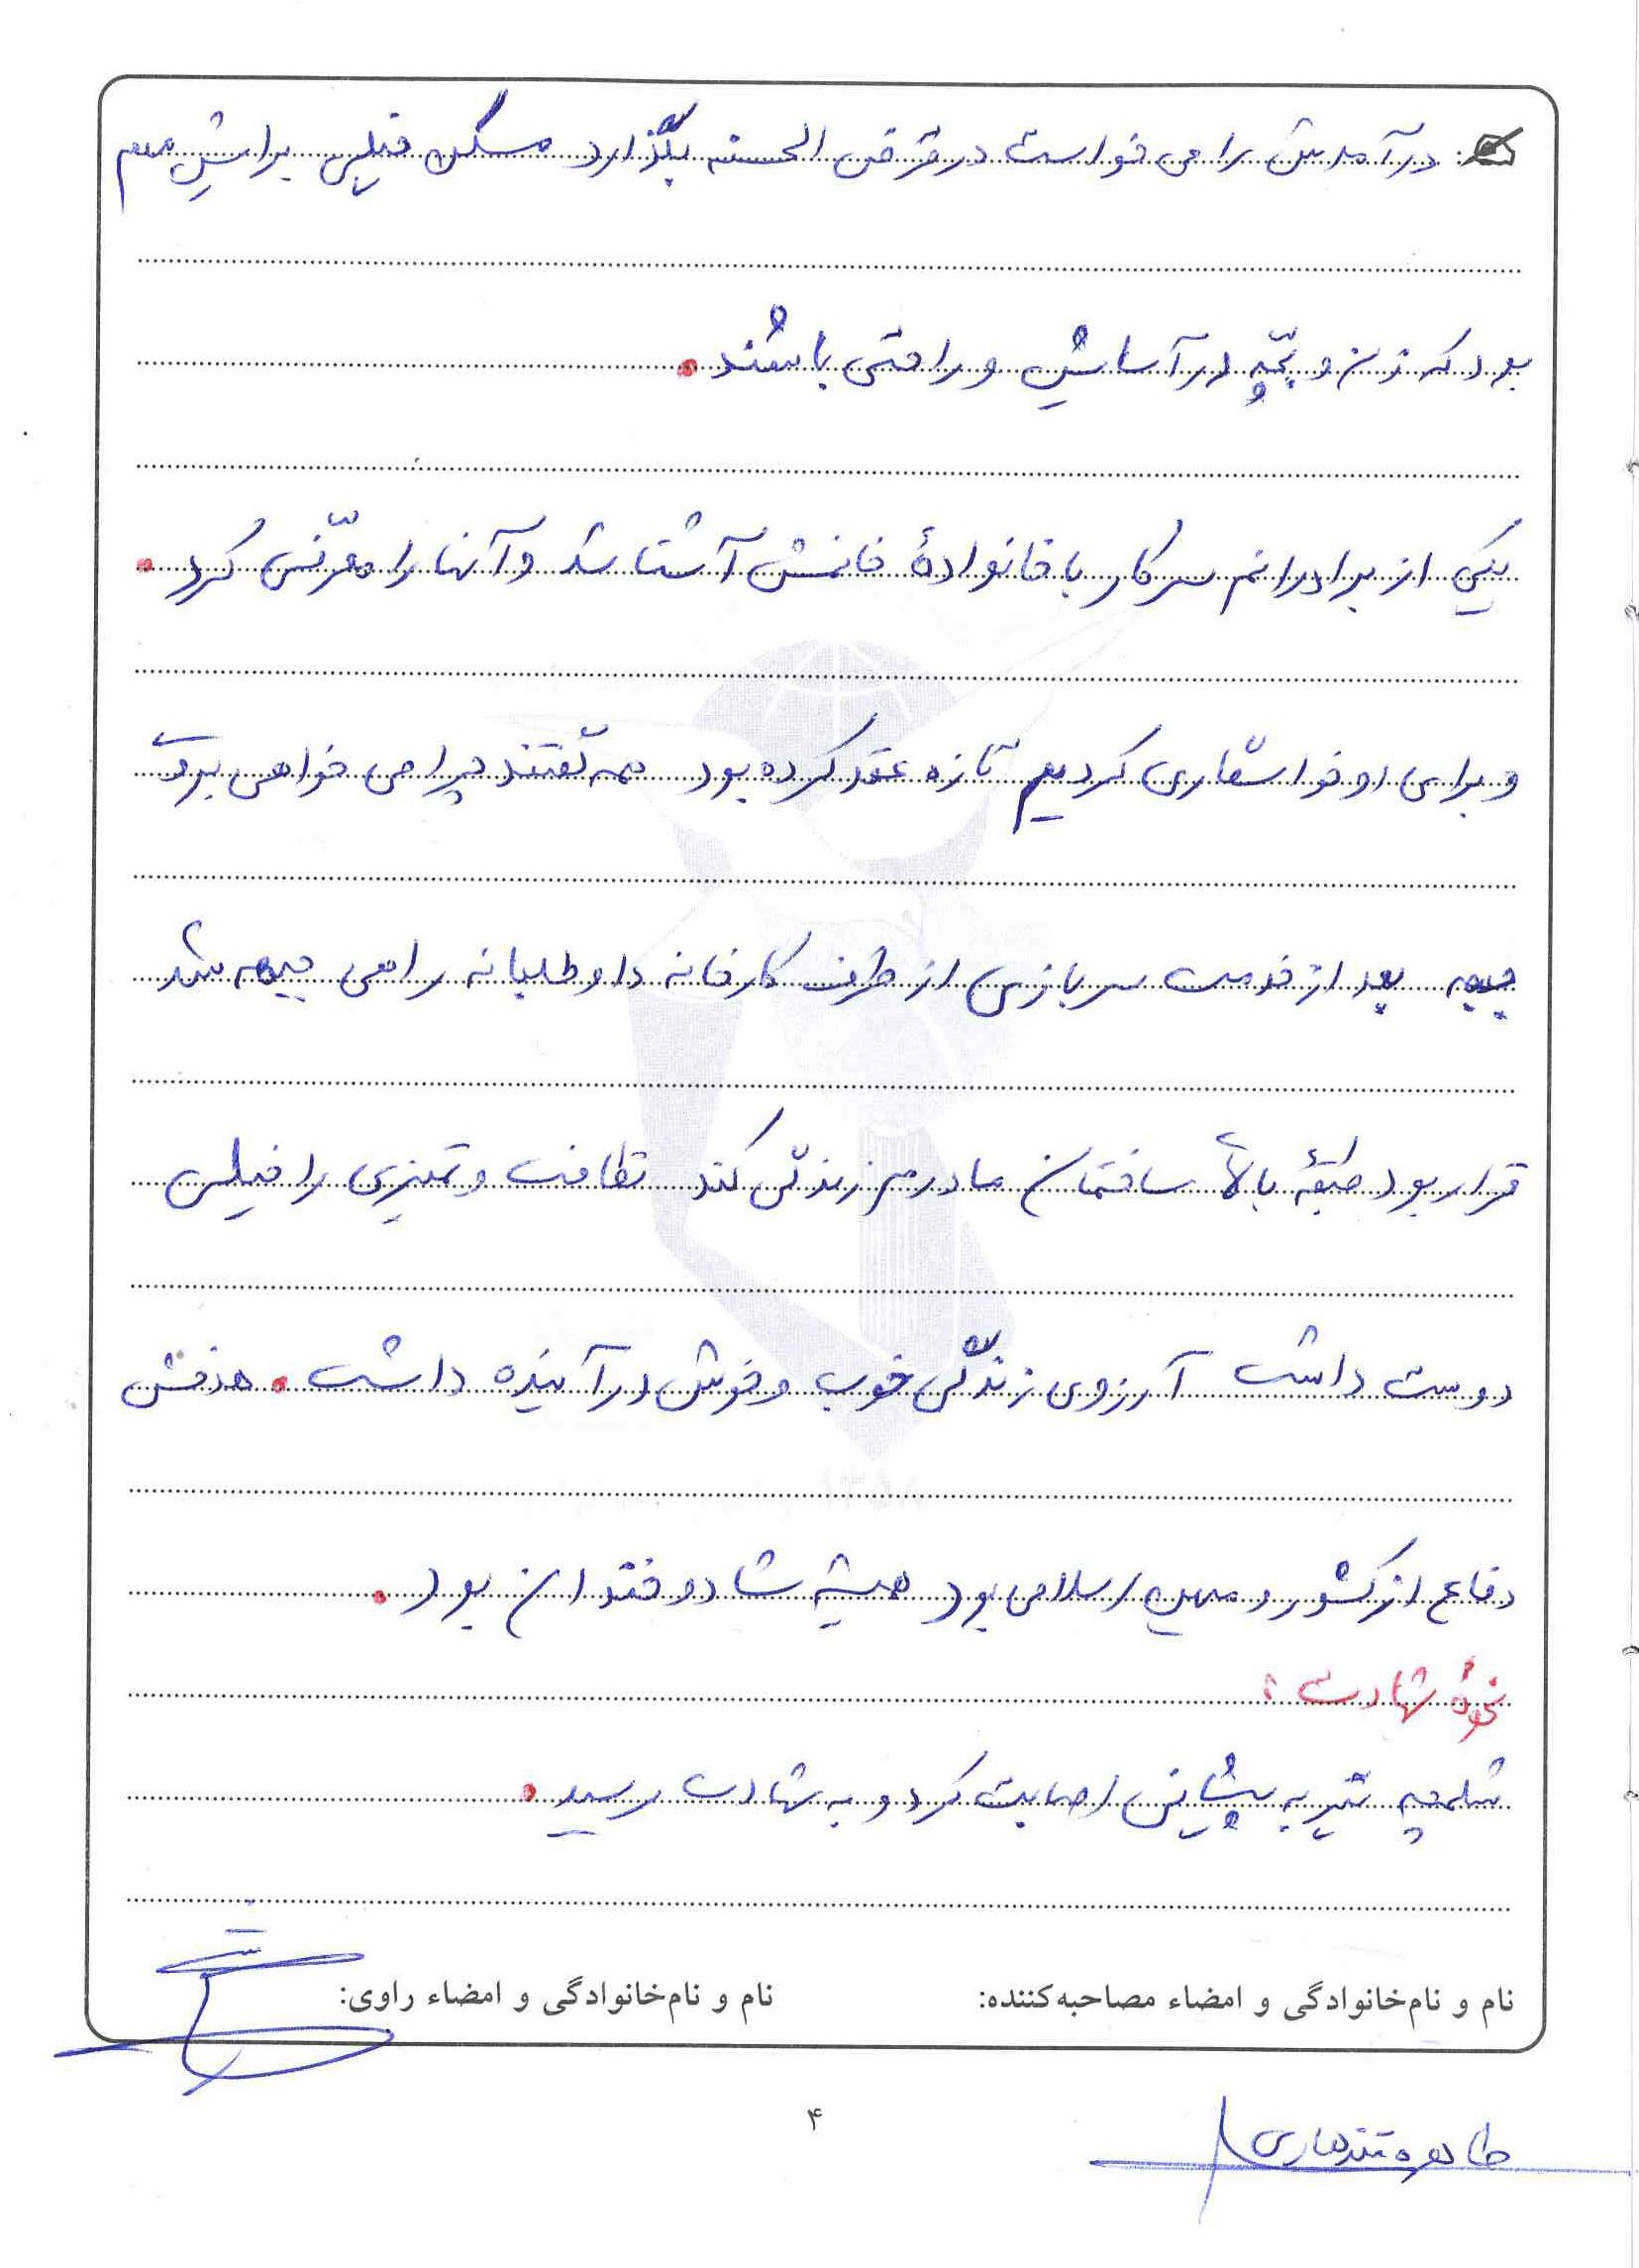 درآمدش را می خواست در قرض الحسنه بگذارد مسکن خیلی برایش مهم
بود که زن و بچه در آسایش و راحتی باشند.
یکی از برادرانم سر کار با خانوادهٔ خانمش آشنا شد و آنها را معرّفی کرد.
و برای او خواستگاری کردیم تازه عقد کرده بود همه گفتند چرا می خواهی بروی
جبهه بعد از خدمت سربازی از طرف کارخانه داوطلبانه راهی جبهه شد
قرار بود طبقهٔ بالای ساختمان مادرم زندگی کند نظافت و تمیزی را خیلی
دوست داشت آرزوی زندگی خوب و خوش در آینده داشت. هدفش
دفاع از کشور و میهن اسلامی بود همیشه شاد و خندان بود.
نحوهٔ شهادت:
شلمچه تیر به پیشانی اصابت کرد و به شهادت رسید.
نام و نام‌خانوادگی و امضاء مصاحبه‌کننده: نام و نام‌خانوادگی و امضاء راوی:
۴
طاهره قندهاری